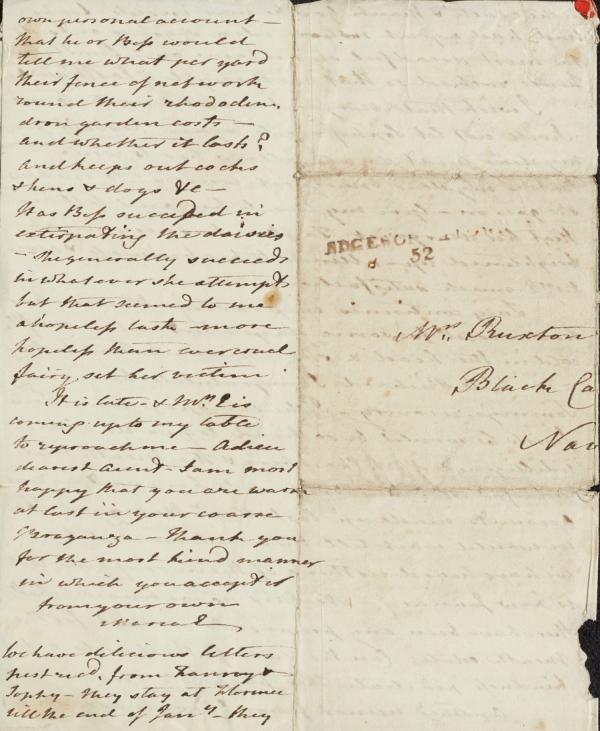 own personal account –
that he or Bess would
tell me what per yard
their fence of net work
round their rhododen,
dron garden costs –
and whether it lasts?
and keeps out cocks
& hens & dogs &c –
Has Bess succeeded in
extirpating the daisies
– She generally succeeds
in what ever she attempts
but that seemed to me
a hopeless task – more
hopeless than ever cruel
fairy set her victim
It is late – & Mrs E is
coming up to my table
to reproach me – Adieu
dearest Aunt – I am most
happy that you are warm
at last in your coarse
Braganza – Thank you
for the most kind manner
in which you accept it
from your own
Maria E
We have delicious letters
just recd. from Fanny &
– they stay at Florence
till the end of Jany – they
EDGEWOR
52
Mrs Ruxton
Black Ca
Nav